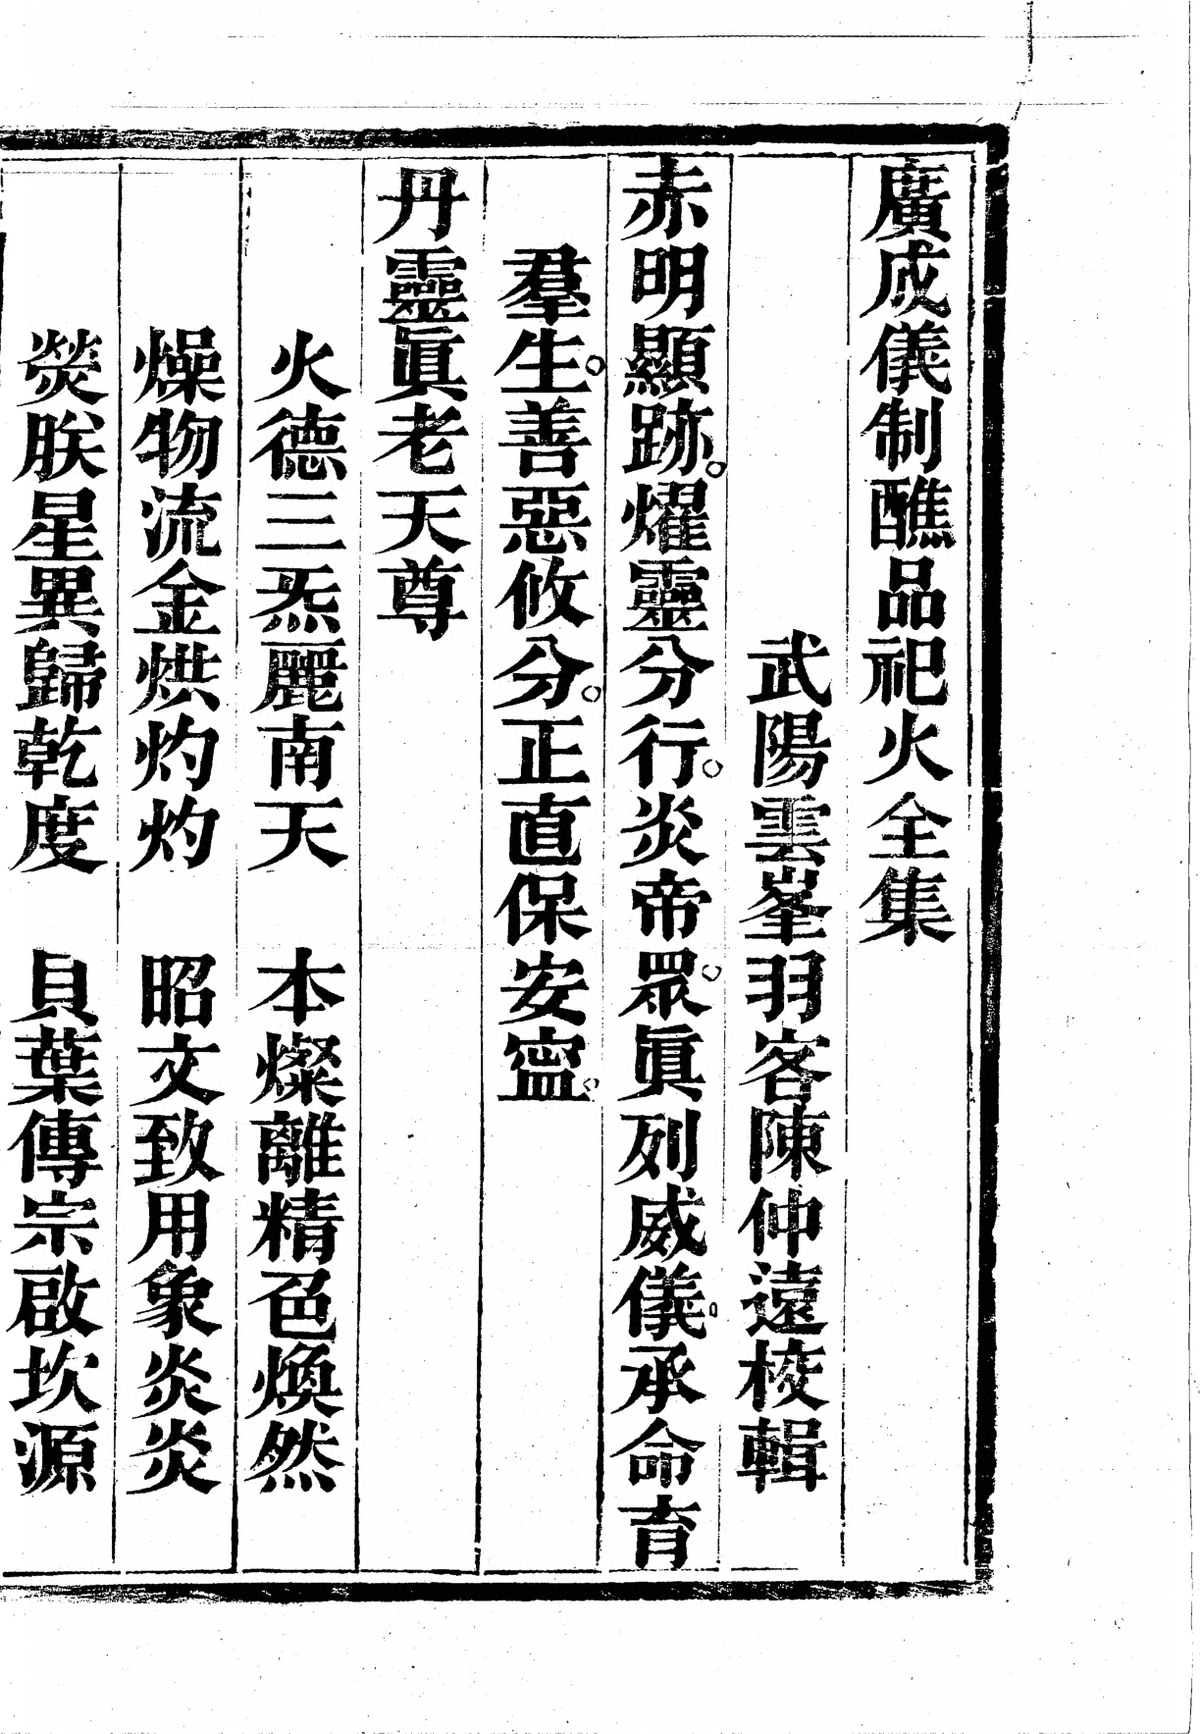 廣成儀制醮品祀火全集
武陽雲峯羽客陳仲遠校輯
赤明顯跡。燿靈分行。炎帝眾。眞列威儀。承命育
羣生。善惡攸分。正直保安寍。
丹靈眞老天尊
火德三炁麗南天　本燦離精色煥然
燥物流金烘灼灼　昭文致用象炎炎
熒朕星異歸乾度　貝葉傳宗啟坎源